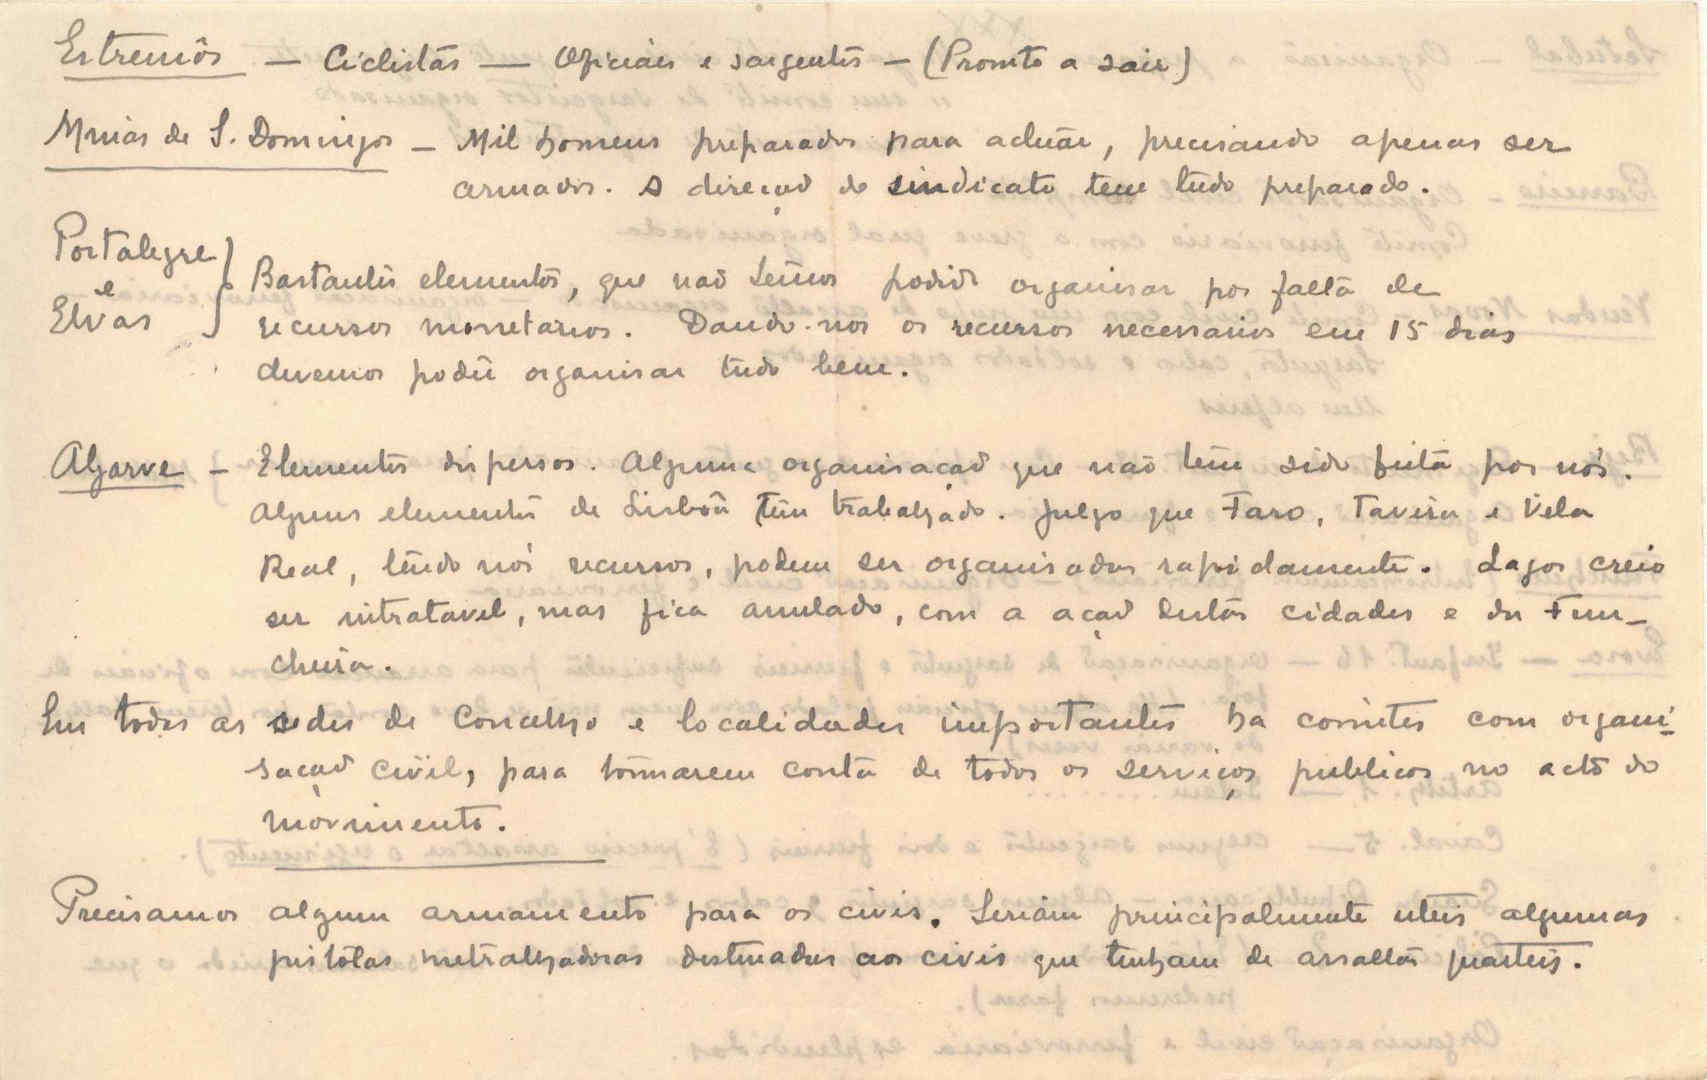 Estremôs — Ciclistas — Oficiais e sargentos — (Pronto a sair)
Minas de S. Domingos — Mil homens preparados para actuar, precisando apenas ser
armados. A direcção do sindicato tem tudo preparado.
Portalegre
e
Elvas
Bastantes elementos, que não temos podido organisar por falta de
recursos monetarios. Dando-nos os recursos necessarios em 15 dias
devemos poder organisar tudo bem.
Algarve — Elementos dispersos. Alguma organisação que não tem sido feita por nós.
Alguns elementos de Lisboa têm trabalhado. Julgo que Faro, Tavira e Vila
Real, tendo nós recursos, podem ser organisados rapidamente. Lagos creio
ser intratavel, mas fica anulado, com a acção destas cidades e da Fun-
cheira.
Em todas as sedes de Concelho e localidades importantes ha comites com organi-
sação civil, para tomarem conta de todos os serviços publicos no acto do
movimento.
Precisamos algum armamento para os civis. Seriam principalmente uteis algumas
pistolas metralhadoras destinadas aos civis que tenham de assaltar quarteis.